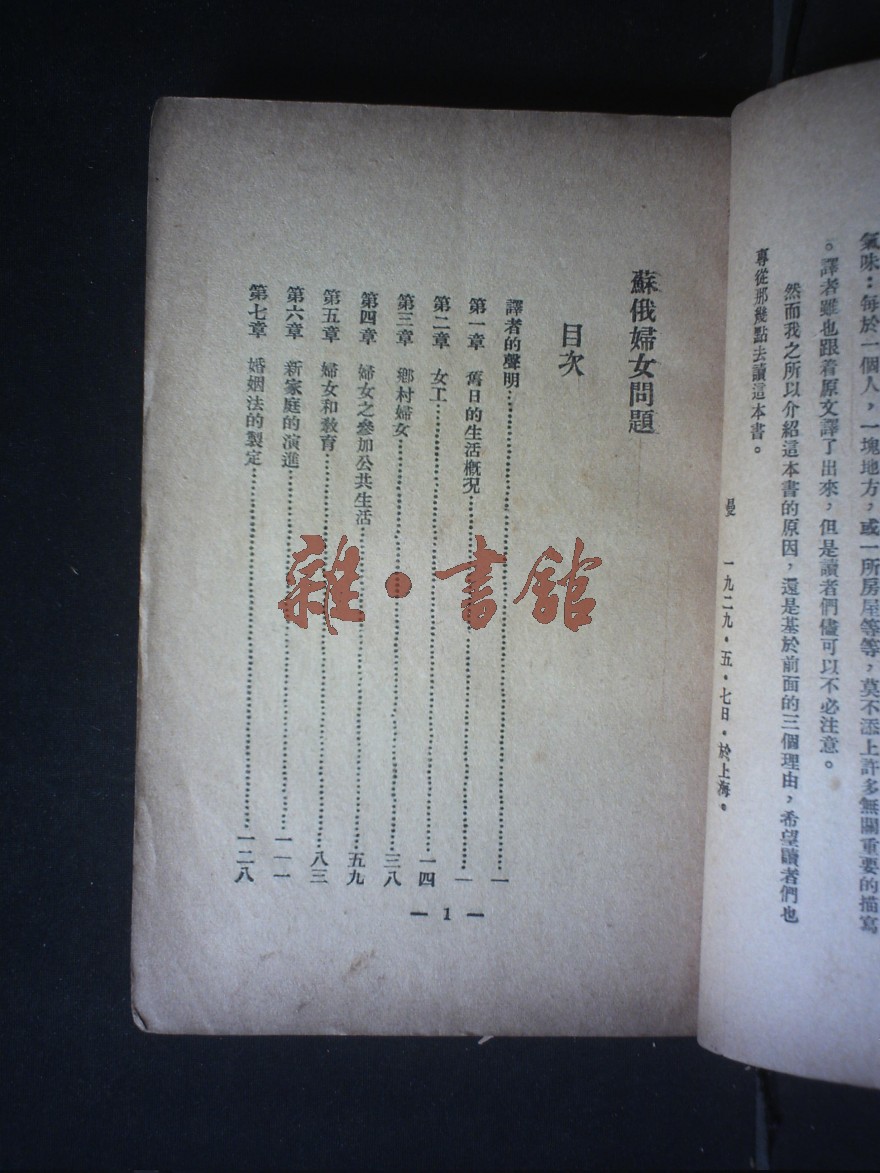 氣味：每於一個人，一塊地方，或一所房屋等等，莫不添上許多無關重要的描寫
。譯者雖也跟着原文譯了出來，但是讀者們儘可以不必注意。
然而我之所以介紹這本書的原因，還是基於前面的三個理由，希望讀者們也
專從那幾點去讀這本書。
曼 一九二九・五・七日・於上海。
蘇俄婦女問題
目次
譯者的聲明……一
第一章 舊日的生活概況……一
第二章 女工……一四
第三章 鄉村婦女……三八
第四章 婦女之參加公共生活……五九
第五章 婦女和教育……八三
第六章 新家庭的演進……一一一
第七章 婚姻法的製定……一二八
— 1 —
雜・書館